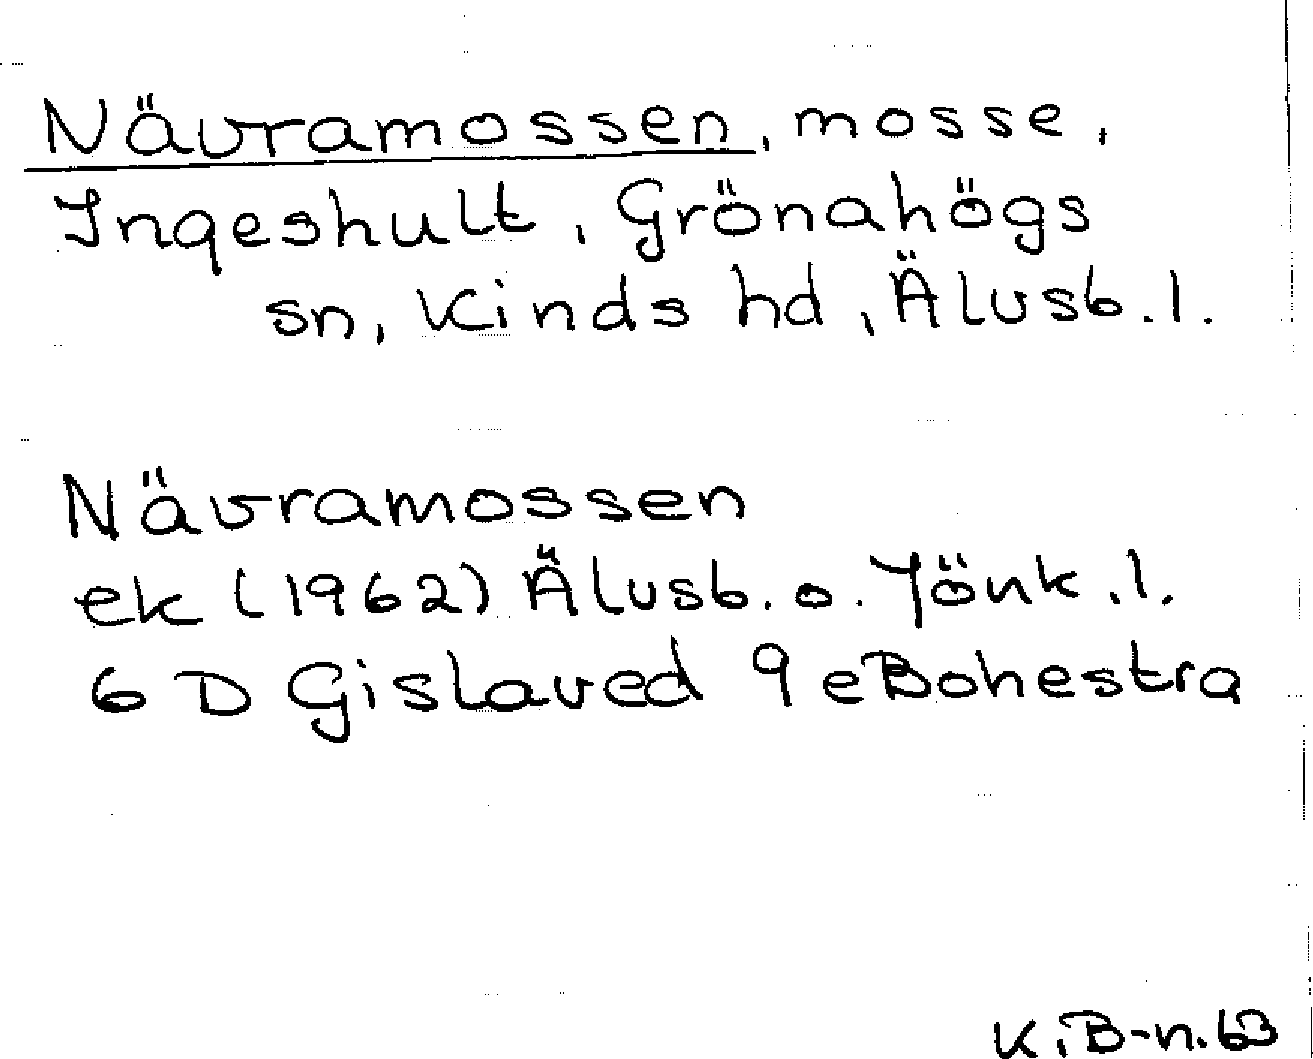 Nävramossen, mosse,
Ingeshult, Grönahögs
sn, Kinds hd, Älvsb.l.
Nävramossen
ek (1962) Älvsb. o. Jönk.l.
6 D Gislaved 9 e Bohestra
K.B-n.63